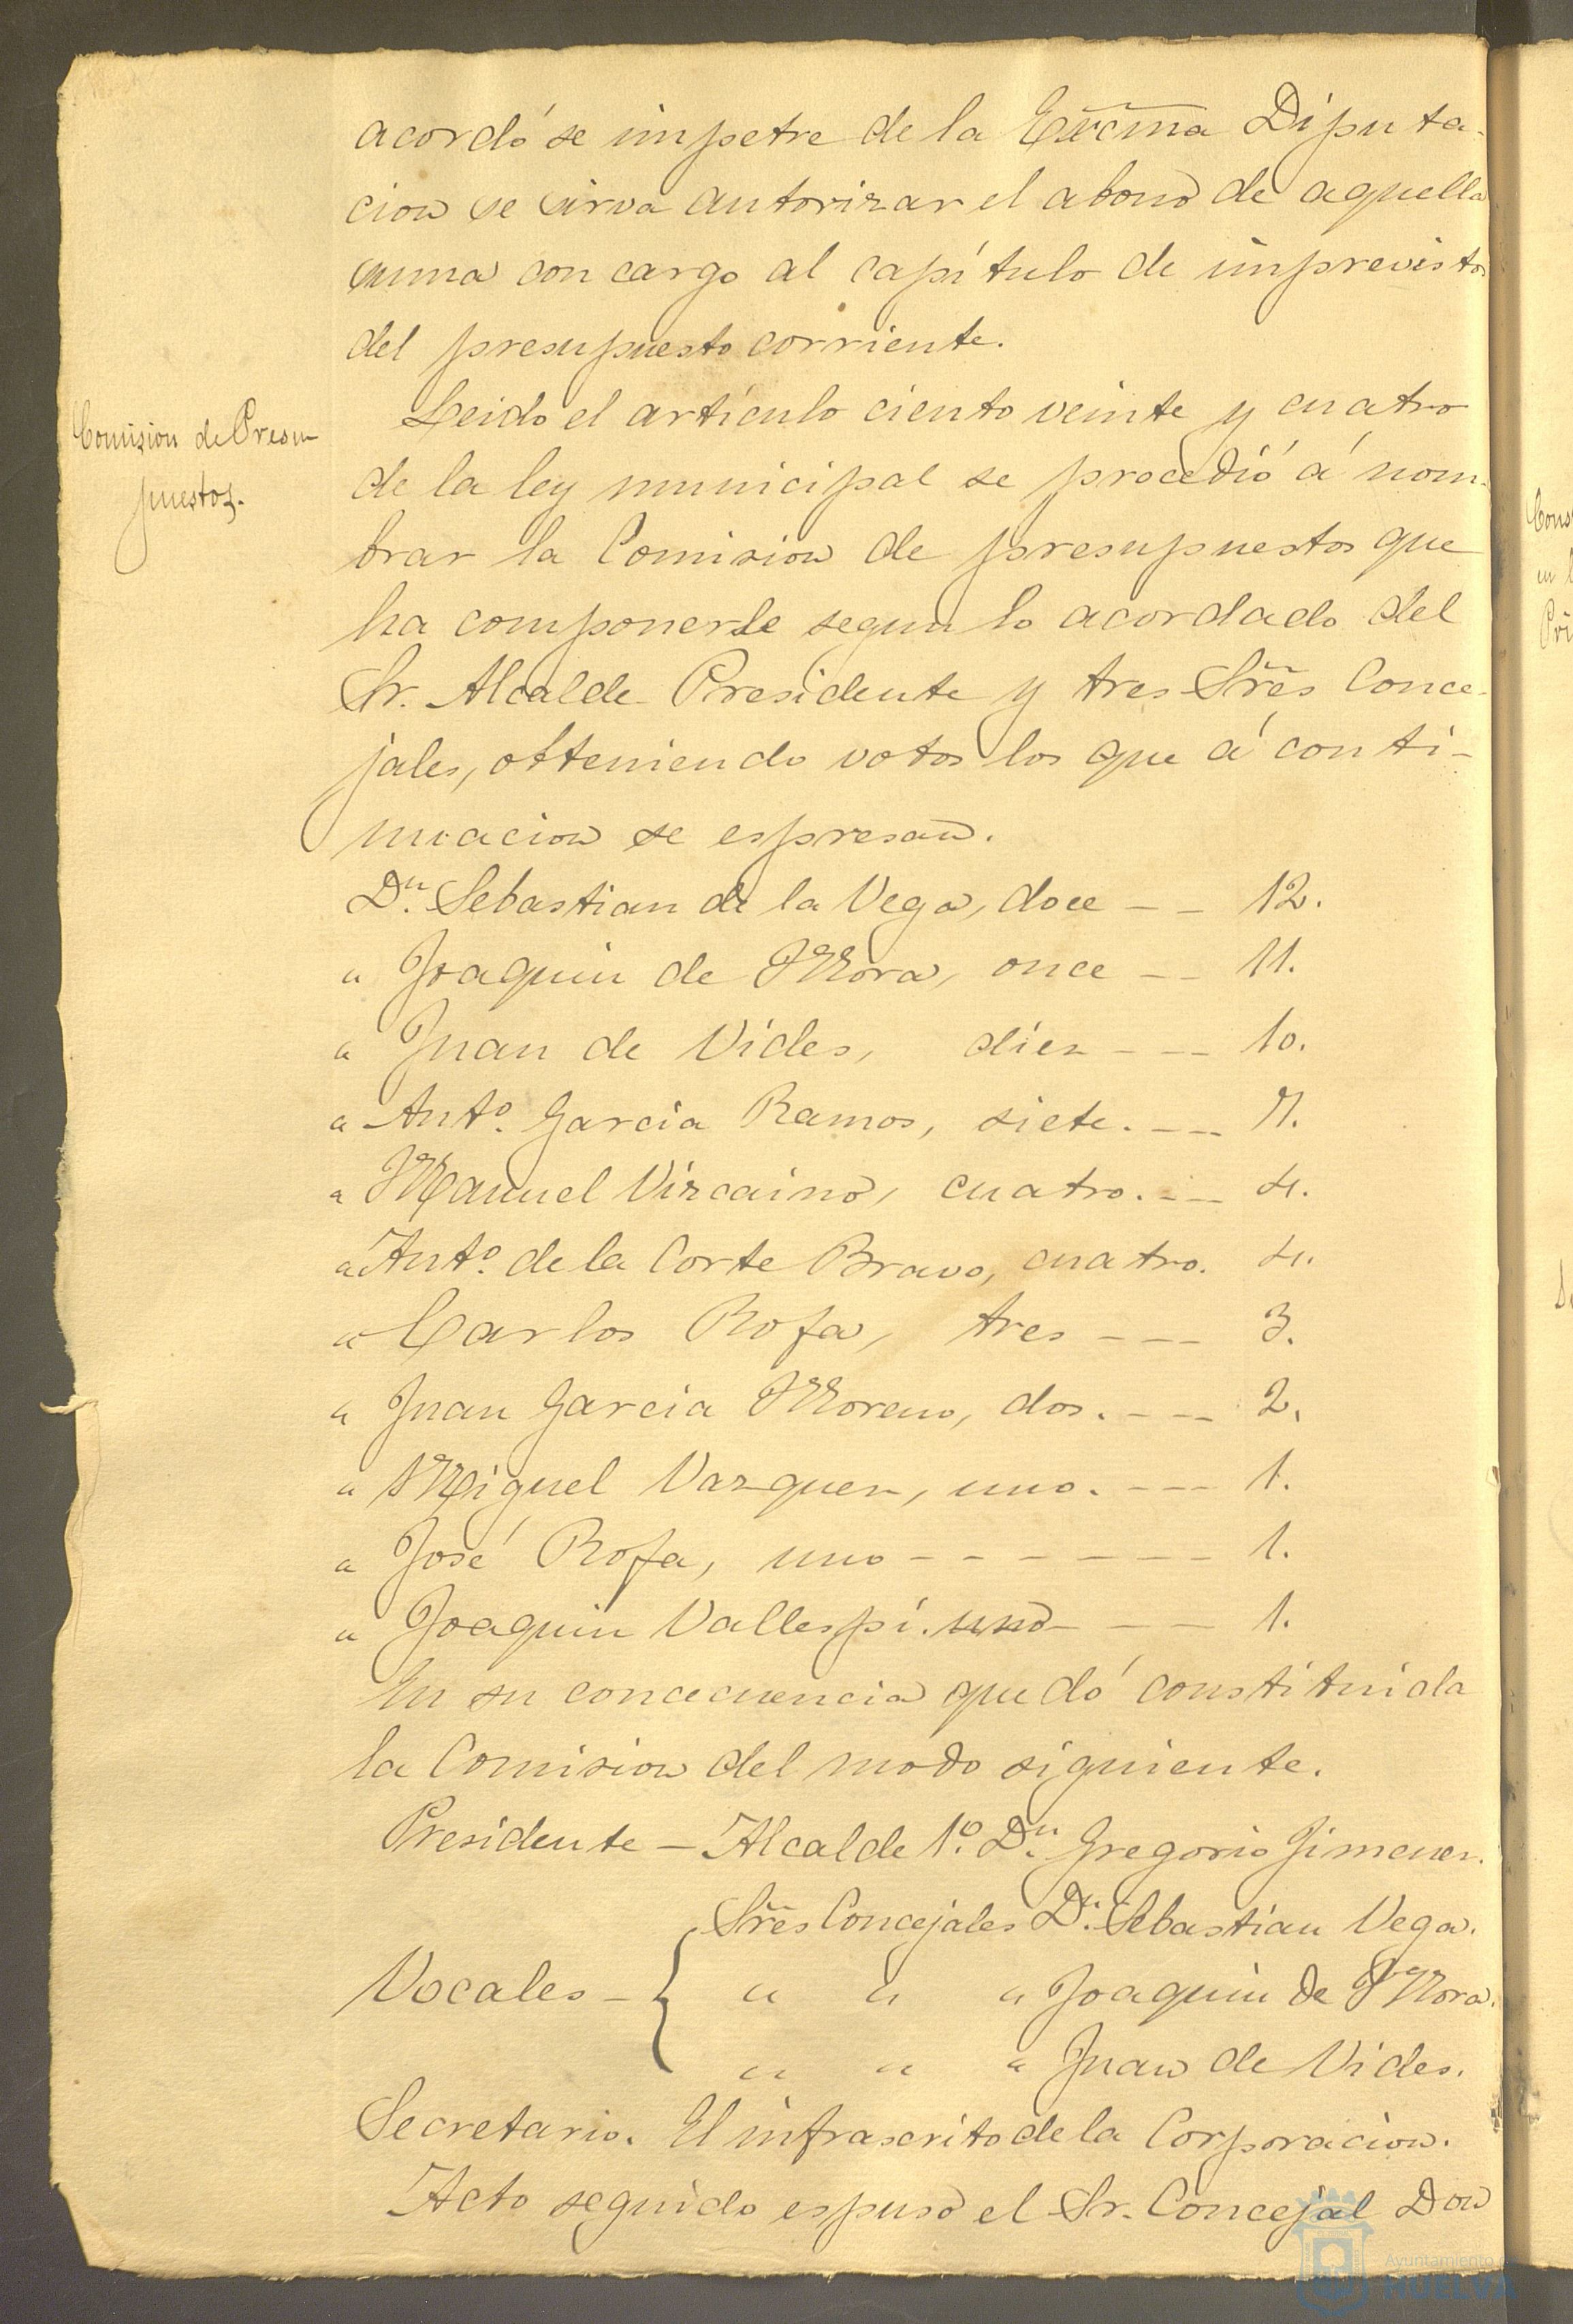 acordó se impetre de la Excma Diputa-
cion se sirva autorizar el abono de aquella
suma con cargo al capítulo de imprevistos
del presupuesto corriente.
Comision de Presu
puestos.
Leido el artículo ciento veinte y cuatro
de la ley municipal se procedió á nom-
brar la Comision de presupuestos que
ha componerse segun lo acordado del
Sr. Alcalde Presidente y tres Sres Conce-
jales, obteniendo votos los que á conti-
nuacion se espresan.
Dn. Sebastian de la Vega, doce -- 12.
" Joaquin de Mora, once -- 11.
" Juan de Vides, diez --- 10.
" Anto. Garcia Ramos, siete. --- 7.
" Manuel Vizcaino, cuatro. --- 4.
" Anto. de la Corte Bravo, cuatro. 4.
" Carlos Rofa, tres --- 3.
" Juan Garcia Moreno, dos. --- 2.
" Miguel Vazquez, uno. --- 1.
" José Rofa, uno ------- 1.
" Joaquin Vallespí. uno --- 1.
En su concecuencia quedó constituida
la Comision del modo siguiente.
Presidente - Alcalde 1º. Dn. Gregorio Jimenez.
Sres Concejales Dn. Sebastian Vega.
Vocales - { " " " Joaquin de Mora.
" " " Juan de Vides.
Secretario. El infrascrito de la Corporacion.
Acto seguido espuso el Sr. Concejal Don
Ayuntamiento
HUELVA